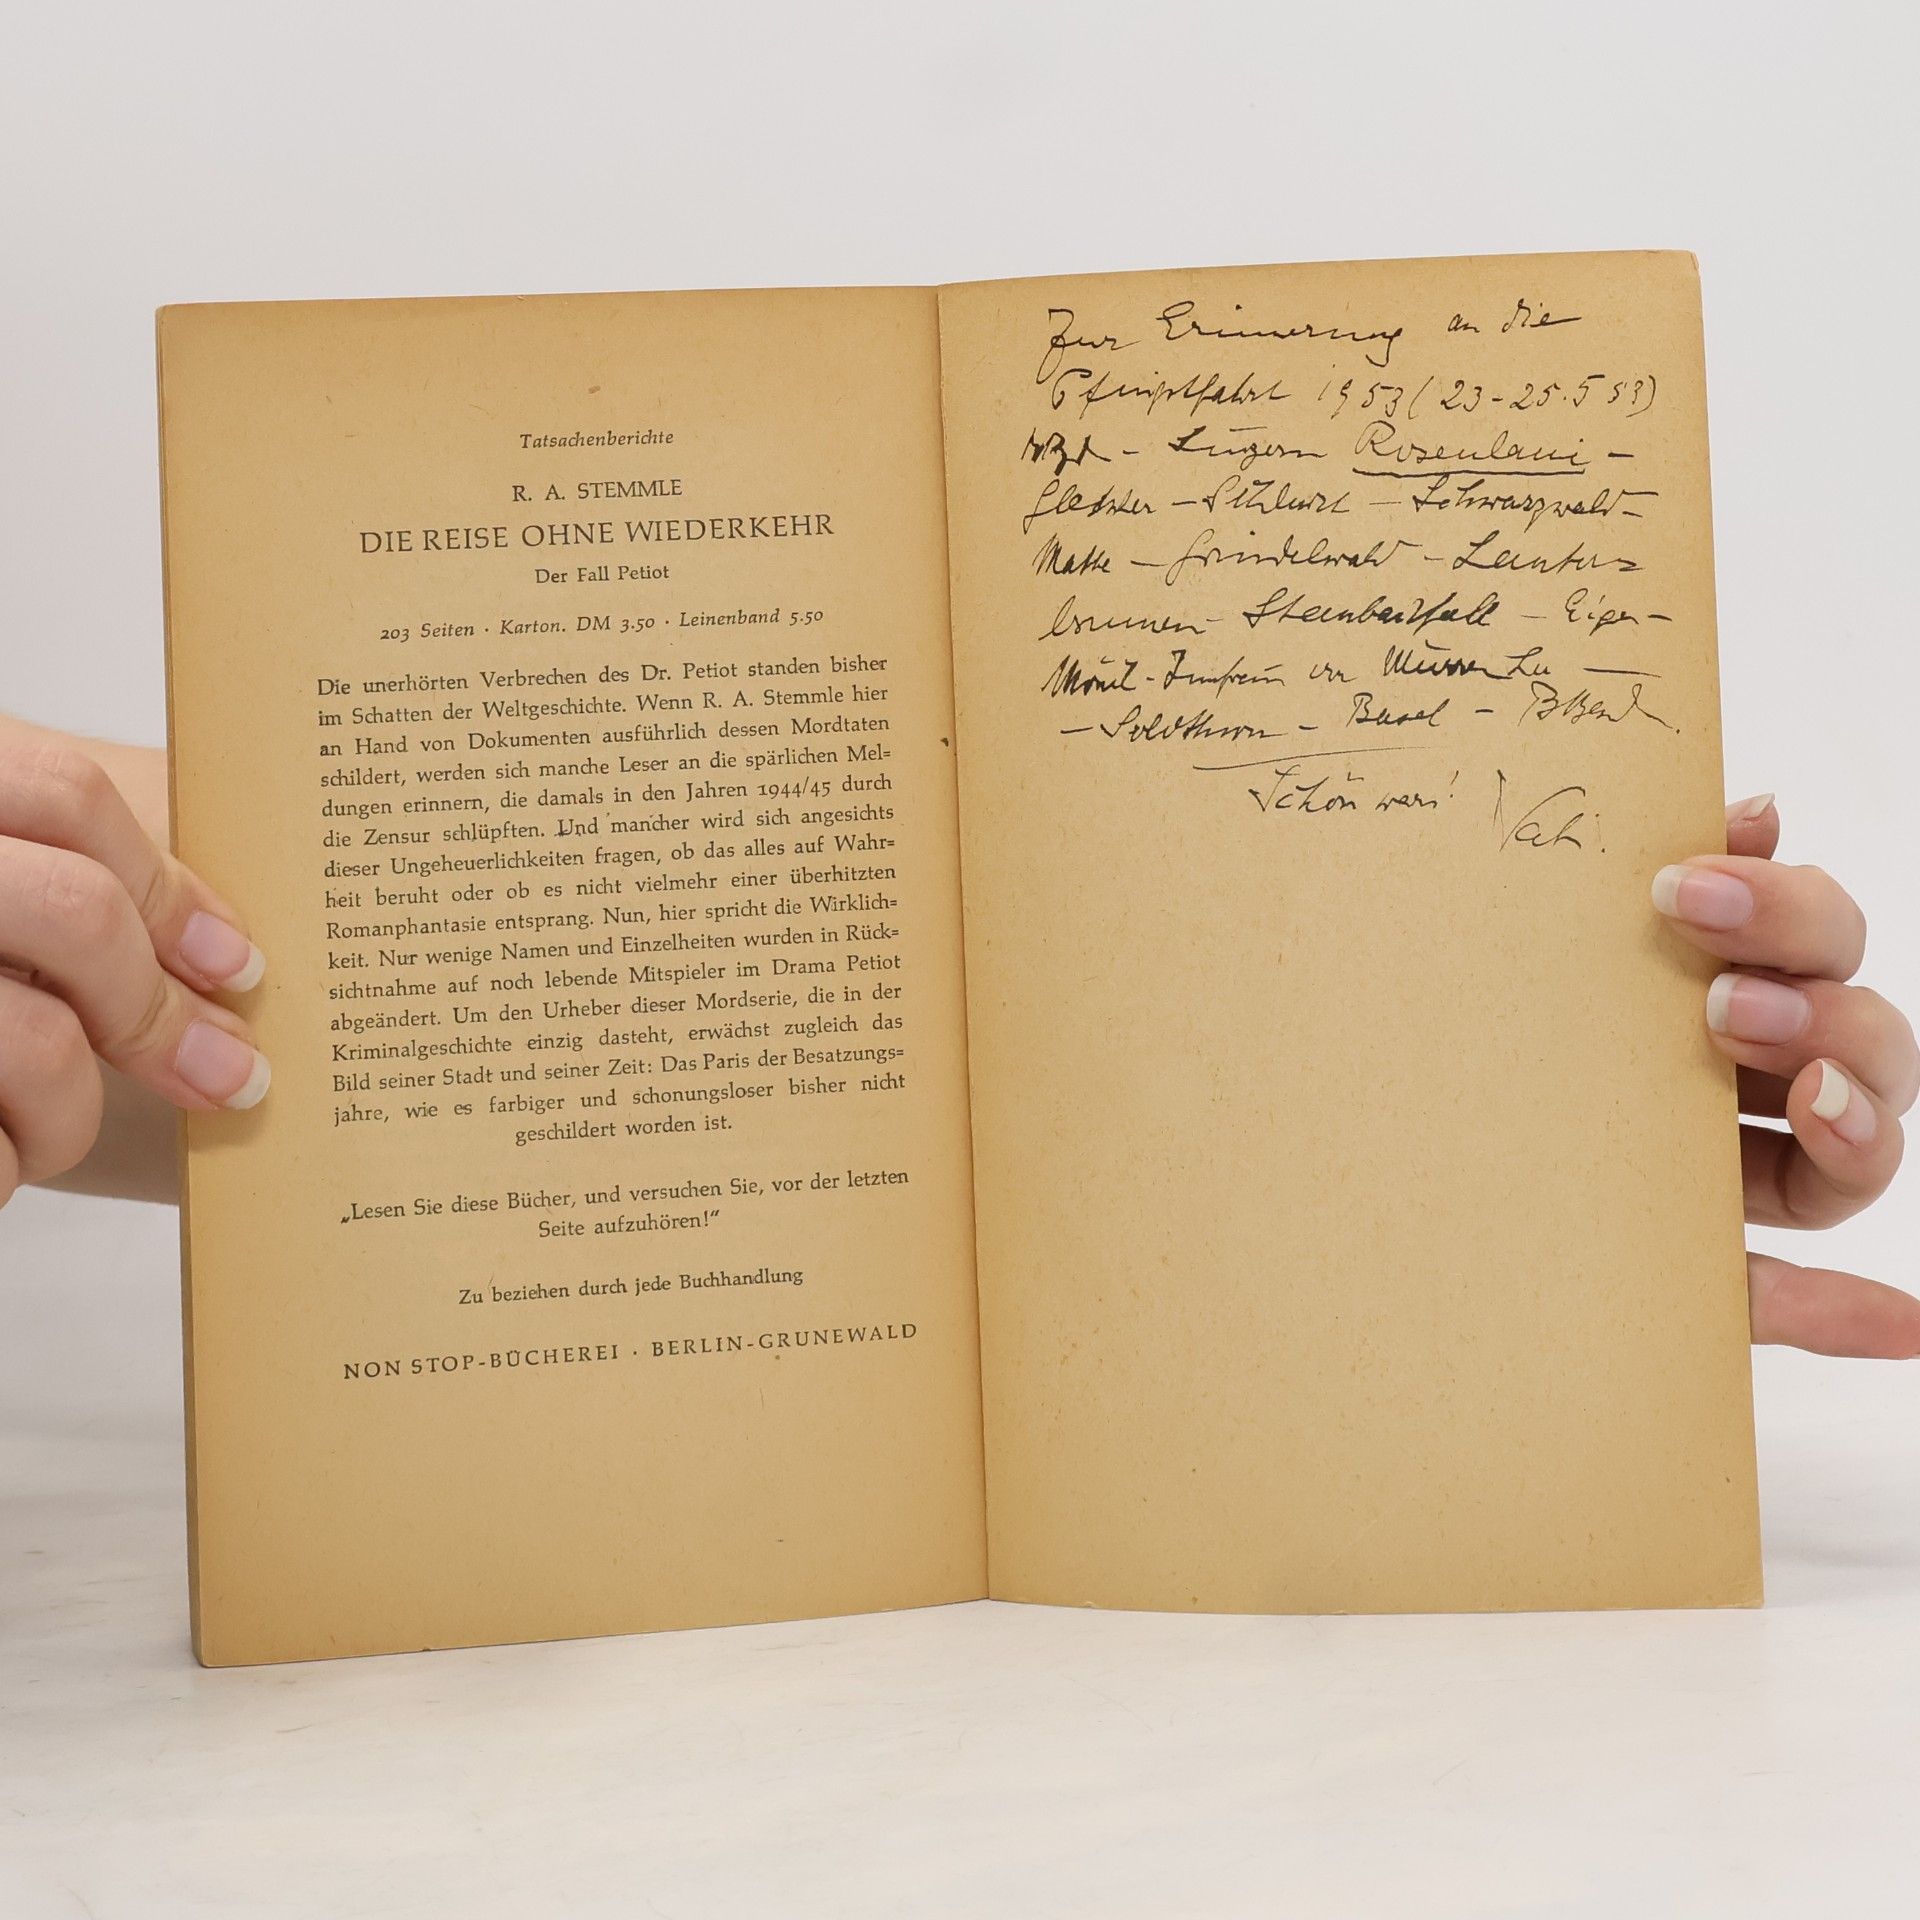 Tatsachenberichte
R. A. STEMMLE
DIE REISE OHNE WIEDERKEHR
Der Fall Petiot
203 Seiten · Karton. DM 3.50 · Leinenband 5.50
Die unerhörten Verbrechen des Dr. Petiot standen bisher
im Schatten der Weltgeschichte. Wenn R. A. Stemmle hier
an Hand von Dokumenten ausführlich dessen Mordtaten
schildert, werden sich manche Leser an die spärlichen Mel=
dungen erinnern, die damals in den Jahren 1944/45 durch
die Zensur schlüpften. Und mancher wird sich angesichts
dieser Ungeheuerlichkeiten fragen, ob das alles auf Wahr=
heit beruht oder ob es nicht vielmehr einer überhitzten
Romanphantasie entsprang. Nun, hier spricht die Wirklich=
keit. Nur wenige Namen und Einzelheiten wurden in Rück=
sichtnahme auf noch lebende Mitspieler im Drama Petiot
abgeändert. Um den Urheber dieser Mordserie, die in der
Kriminalgeschichte einzig dasteht, erwächst zugleich das
Bild seiner Stadt und seiner Zeit: Das Paris der Besatzungs=
jahre, wie es farbiger und schonungsloser bisher nicht
geschildert worden ist.
„Lesen Sie diese Bücher, und versuchen Sie, vor der letzten
Seite aufzuhören!“
Zu beziehen durch jede Buchhandlung
NON STOP-BÜCHEREI · BERLIN-GRUNEWALD
Zur Erinnerung an die
Pfingstfahrt 1953 (23-25.5 53)
– Luzern Rosenlaui –
– Schwarzwald–
Matte – Grindelwald – Lauter=
brunnen – – Eiger–
Mürren
– Solothurn – Basel –
Schön wars!